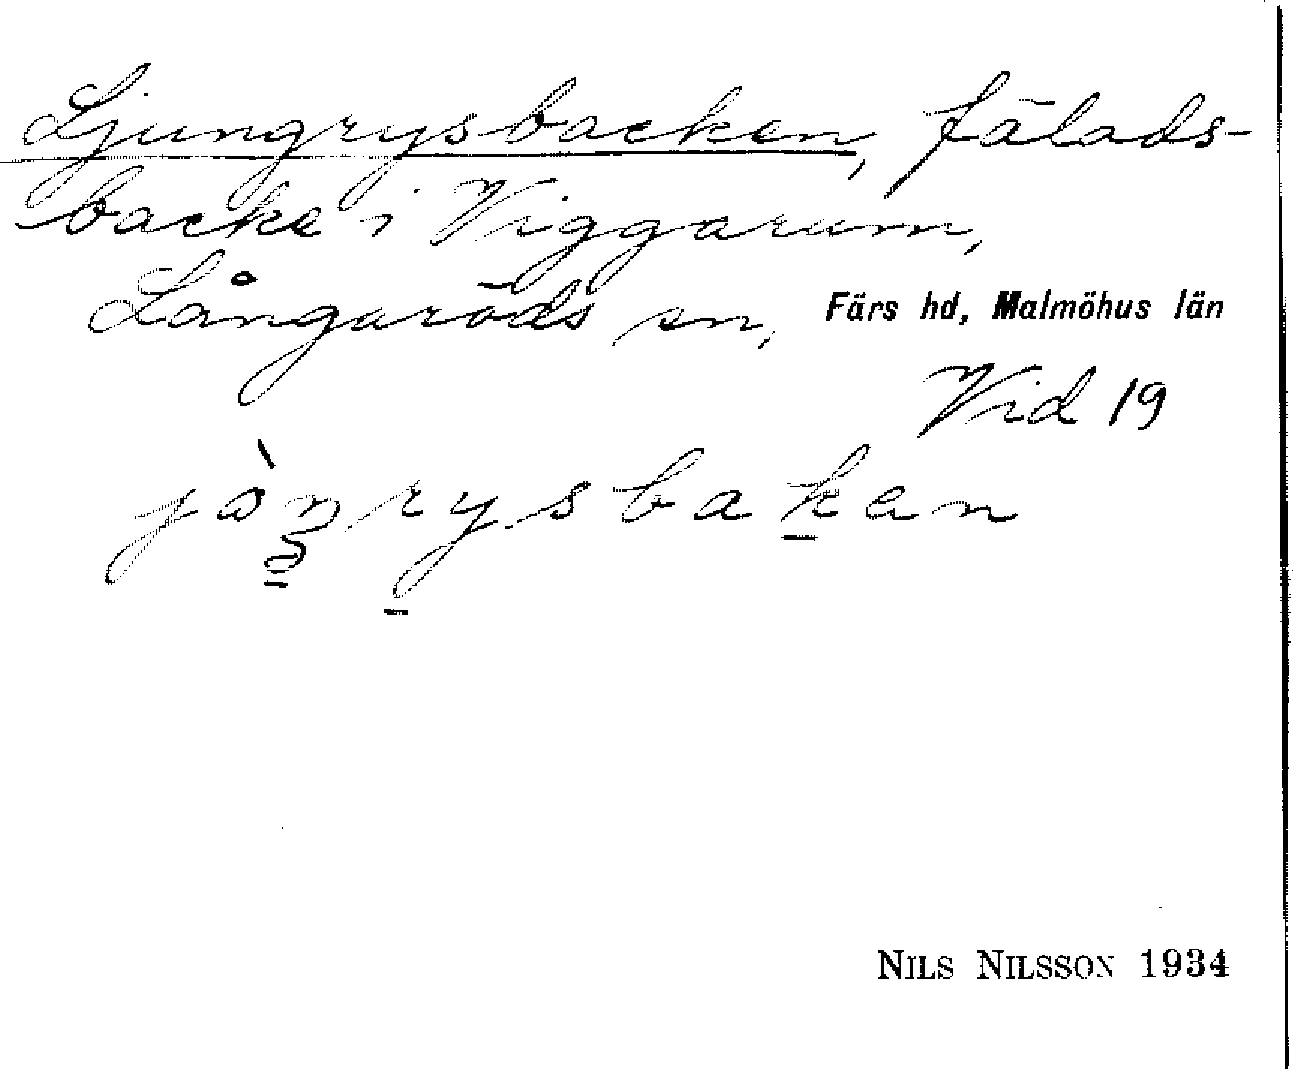 Ljungrysbacken, fälads-
backe i Viggarum,
Långaröds sn, Färs hd, Malmöhus län
Vid 19
NILS NILSSON 1934